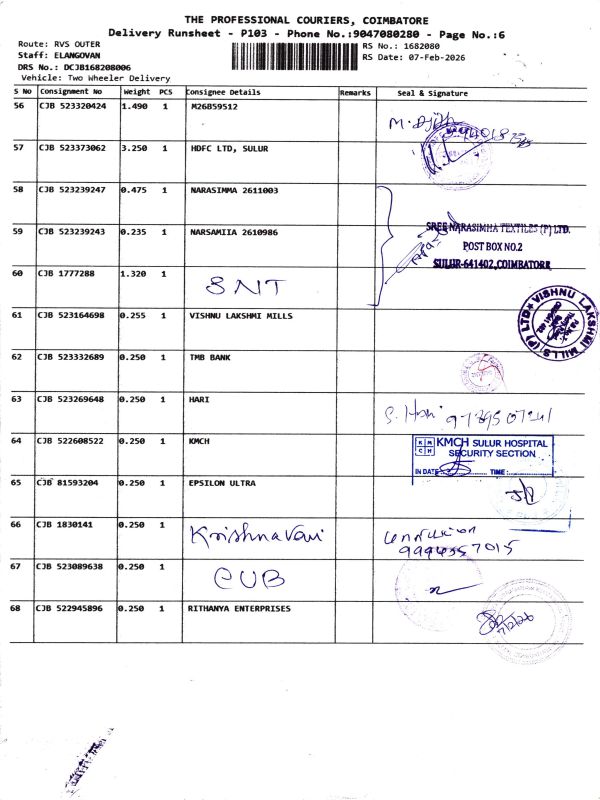 THE PROFESSIONAL COURIERS, COIMBATORE
Delivery Runsheet - P103 - Phone No.:9047080280 - Page No.:6
Route: RVS OUTER
Staff: ELANGOVAN
DRS No.: DCJB168208006
Vehicle: Two Wheeler Delivery
RS No.: 1682080
RS Date: 07-Feb-2026
S No Consignment No Weight PCS Consignee Details Remarks Seal & Signature
56 CJB 523320424 1.490 1 M26B59512
57 CJB 523373062 3.250 1 HDFC LTD, SULUR
58 CJB 523239247 0.475 1 NARASIMMA 2611003
59 CJB 523239243 0.235 1 NARSAMIIA 2610986
SREE NARASIMHA TEXTILES (P) LTD.
POST BOX NO.2
SULUR-641402, COIMBATORE
60 CJB 1777288 1.320 1 SNT
61 CJB 523164698 0.255 1 VISHNU LAKSHMI MILLS
VISHNU LAKSHMI MILLS (P) LTD
62 CJB 523332689 0.250 1 TMB BANK
63 CJB 523269648 0.250 1 HARI
64 CJB 522608522 0.250 1 KMCH
KMCH SULUR HOSPITAL
SECURITY SECTION
IN DATE: TIME:
65 CJB 81593204 0.250 1 EPSILON ULTRA
66 CJB 1830141 0.250 1 Krishnaveni
9994357015
67 CJB 523089638 0.250 1 CUB
68 CJB 522945896 0.250 1 RITHANYA ENTERPRISES
7/2/26